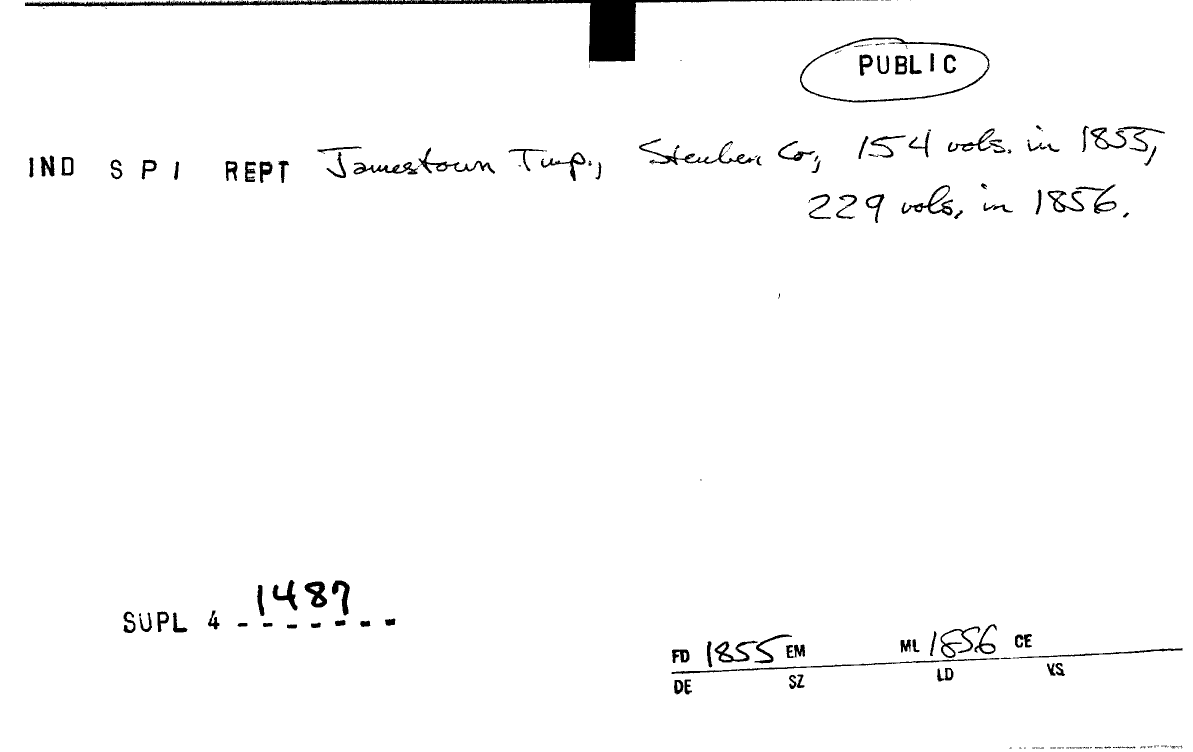 PUBLIC
IND S P I REPT Jamestown Twp., Steuben Co., 154 vols. in 1855,
229 vols. in 1856.
1487
SUPL 4 - - - - - - -
FD 1855 EM ML 1856 CE
DE SZ LD VS